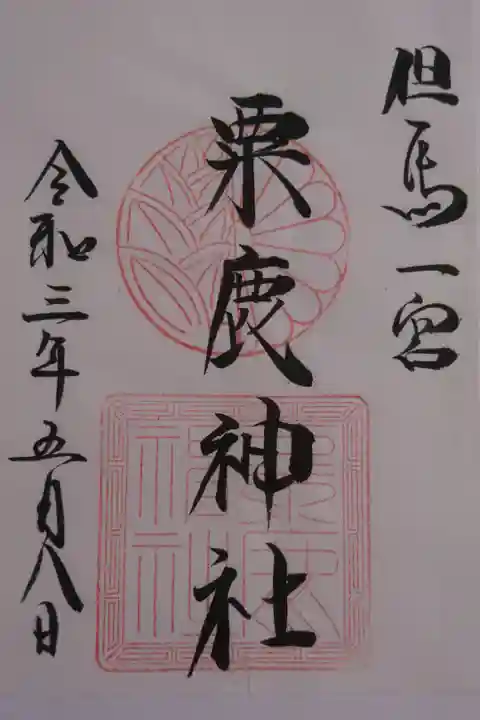 但馬一宮
粟鹿神社
令和三年五月八日
粟鹿
神社